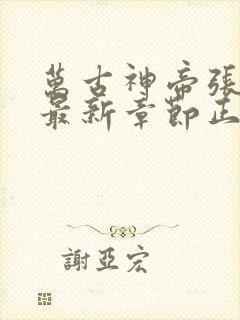 萬古神帝張
最新章節正
謝亞宏